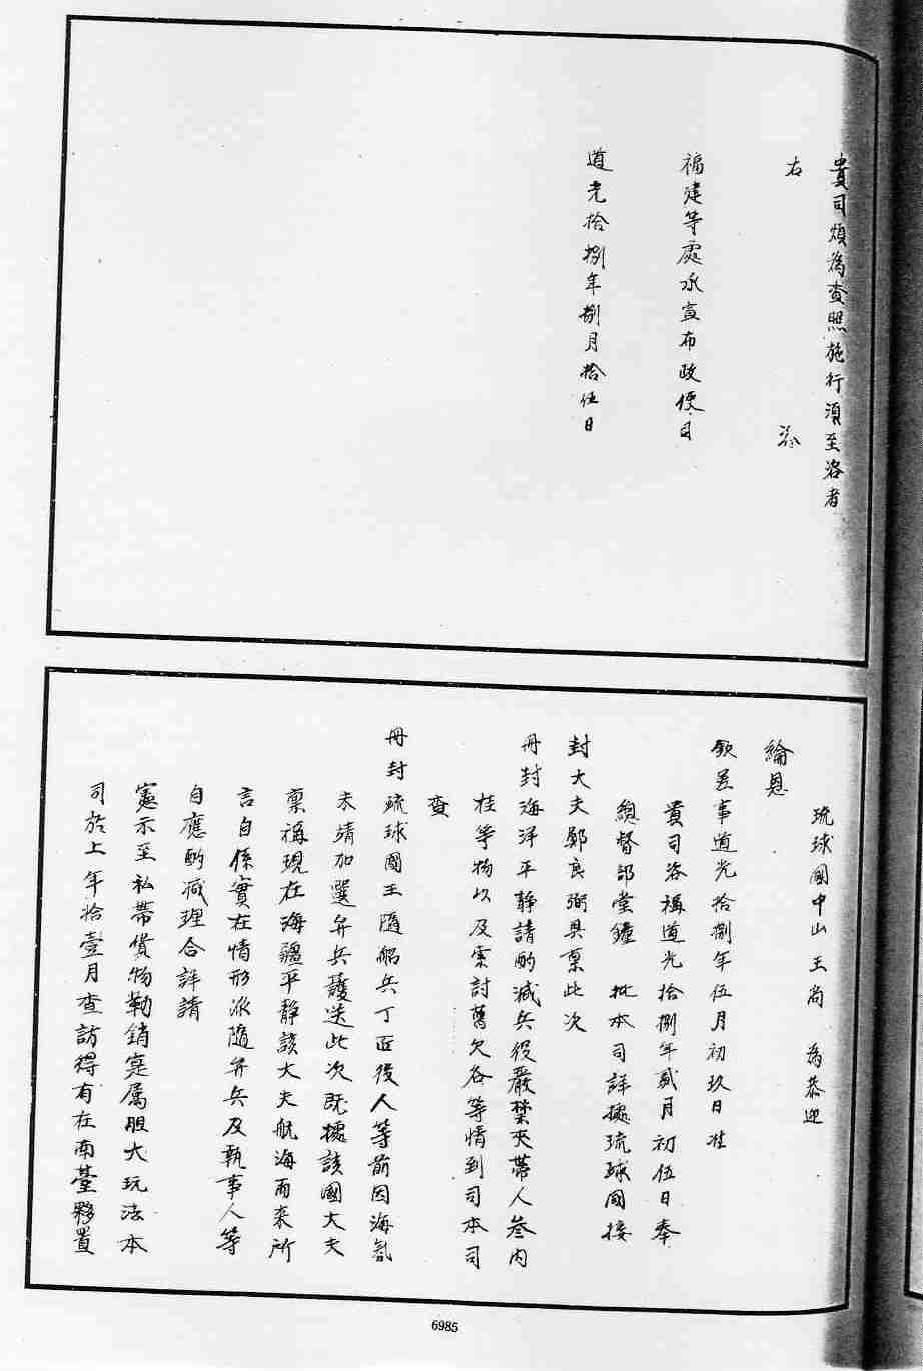 貴司煩為查照施行須至咨者
右　咨
福建等處承宣布政使司
道光拾捌年捌月拾伍日
琉球國中山王尚　為恭迎
綸恩
欽差事道光拾捌年伍月初玖日准
貴司咨稱道光拾捌年貳月初伍日奉
總督部堂鐘　批本司詳據琉球國接
封大夫鄭良弼具稟此次
冊封海洋平靜請酌減兵役嚴禁夾帶人參肉
桂等物以及索討舊欠各等情到司本司
查
冊封琉球國王隨船兵丁匠役人等前因海氛
未靖加選弁兵護送此次既據該國大夫
稟稱現在海疆平靜該大夫航海而來所
言自係實在情形派隨弁兵及執事人等
自應酌減理合詳請
憲示至私帶貨物勒銷寔屬胆大玩法本
司於上年拾壹月查訪得有在南臺夥置
6985